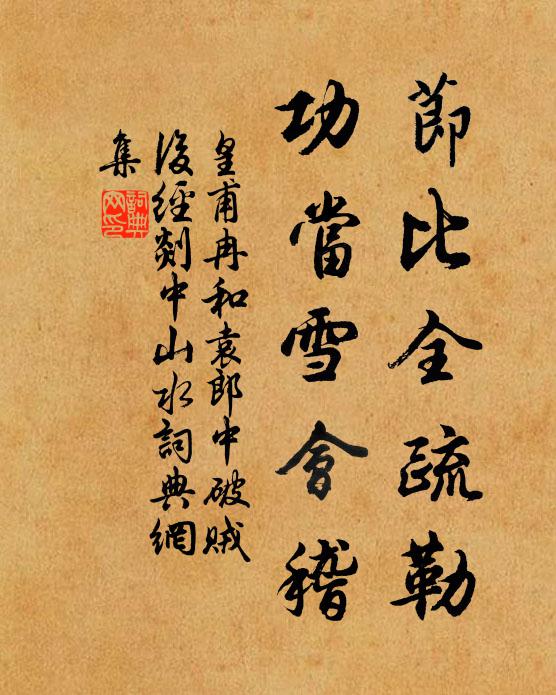 莭比全疏勒
功當雪會稽
皇甫冉和袁郎中破賊
後經剡中山水詞典網
集
詞典
网印